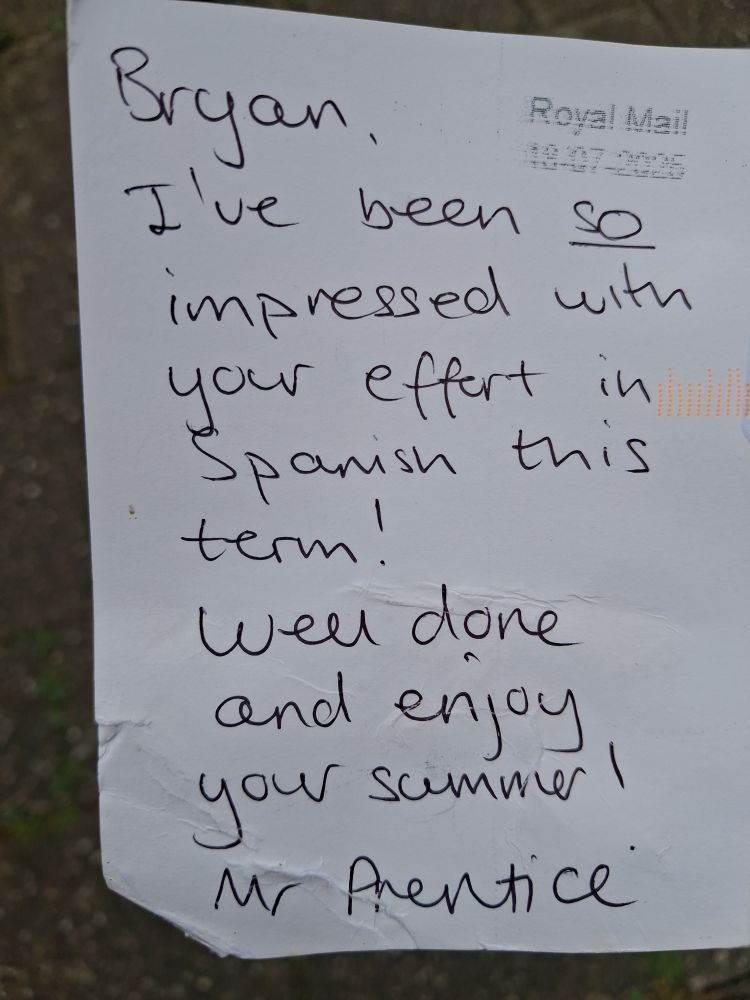 Bryan,
Royal Mail
I've been so
impressed with
your effort in
Spanish this
term!
Well done
and enjoy
your summer!
Mr Prentice